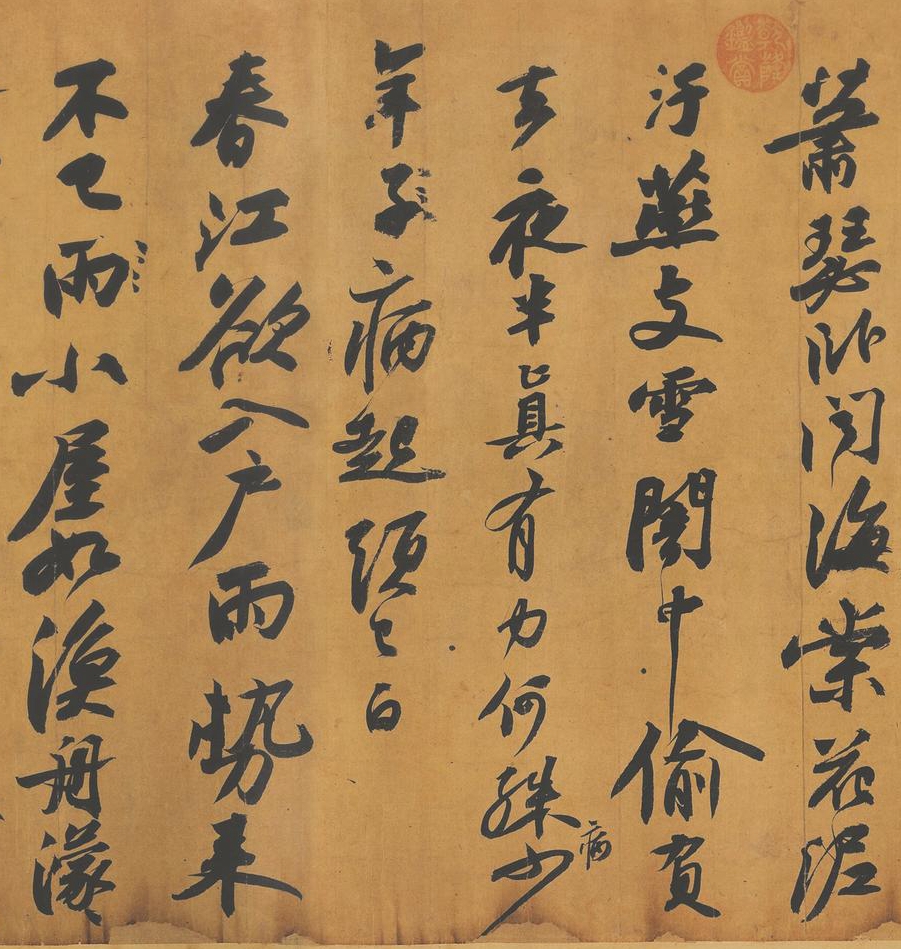 蕭瑟臥聞海棠花泥
汙燕支雪闇中偷負
去夜半真有力何殊少
病
年子病起頭已白
春江欲入戶雨勢来
不已雨小屋如漁舟濛〻
乾隆鑑賞